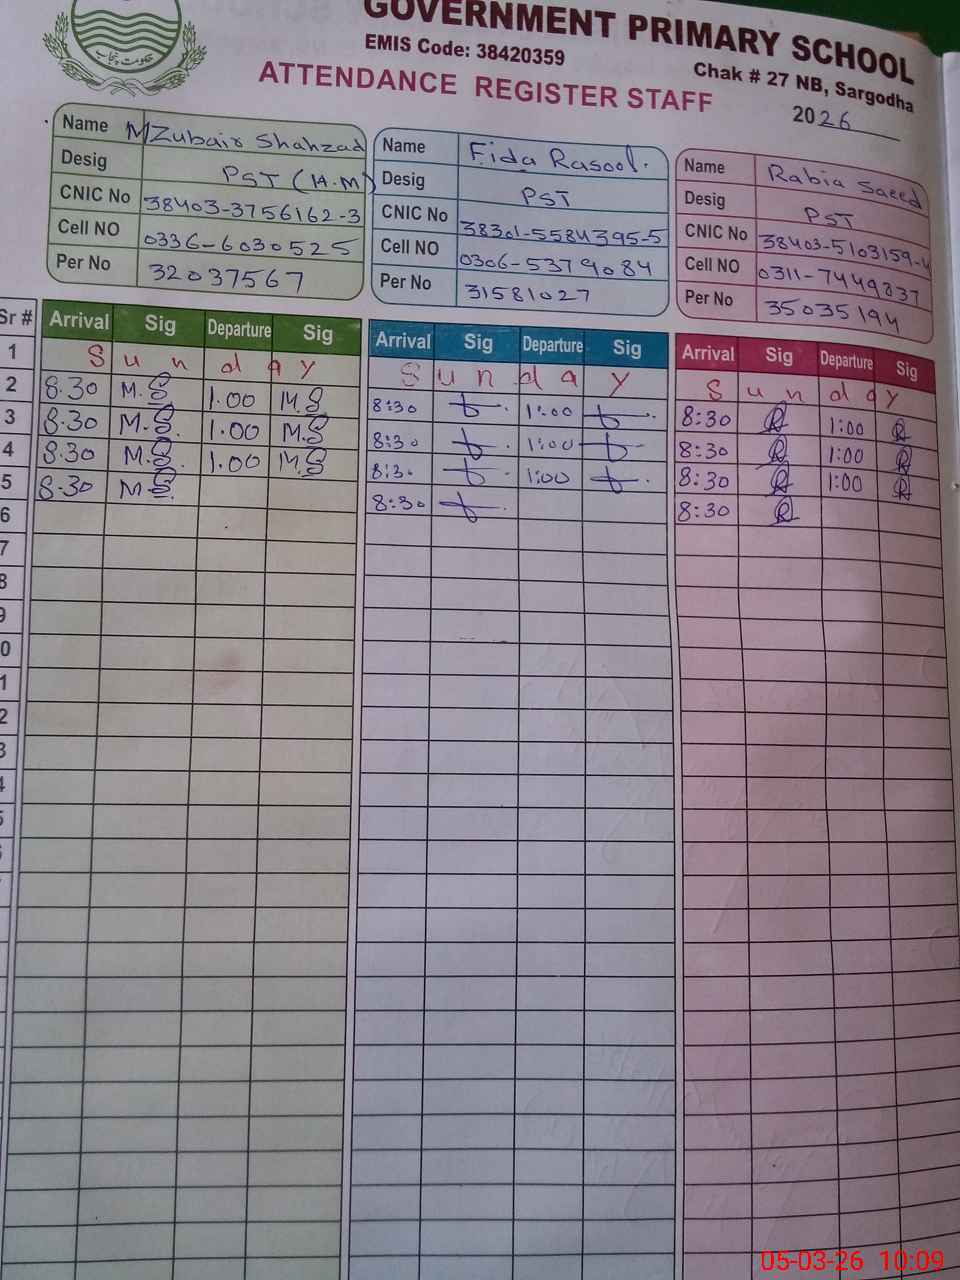 حکومت پنجاب
GOVERNMENT PRIMARY SCHOOL
EMIS Code: 38420359
Chak # 27 NB, Sargodha
ATTENDANCE REGISTER STAFF
2026
Name M Zubair Shahzad
Desig PST (H.M)
CNIC No 38403-3756162-3
Cell NO 0336-6030525
Per No 32037567
Name Fida Rasool.
Desig PST
CNIC No 38301-5584395-5
Cell NO 0306-5379084
Per No 31581027
Name Rabia Saeed
Desig PST
CNIC No 38403-5103159-4
Cell NO 0311-7449837
Per No 35035194
Sr # Arrival Sig Departure Sig Arrival Sig Departure Sig Arrival Sig Departure Sig
1 Sunday Sunday Sunday
2 8.30 M.S 1.00 M.S 8:30 1:00 8:30 R 1:00 R
3 8.30 M.S. 1.00 M.S 8:30 1:00 8:30 R 1:00 R
4 8.30 M.S. 1.00 M.S 8:30 1:00 8:30 R 1:00 R
5 8.30 M.S. 8:30 8:30 R
6
7
8
9
0
1
2
3
4
5
6
05-03-26 10:09